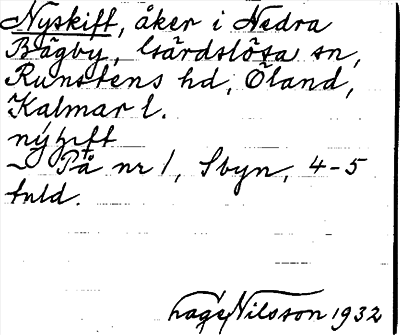 Nyskift, åker i Nedra
Bägby, Gärdslösa sn,
Runstens hd, Öland,
Kalmar l.
nýʃift
~ På nr 1, Sbyn, 4-5
tuld.
Hage Nilsson 1932